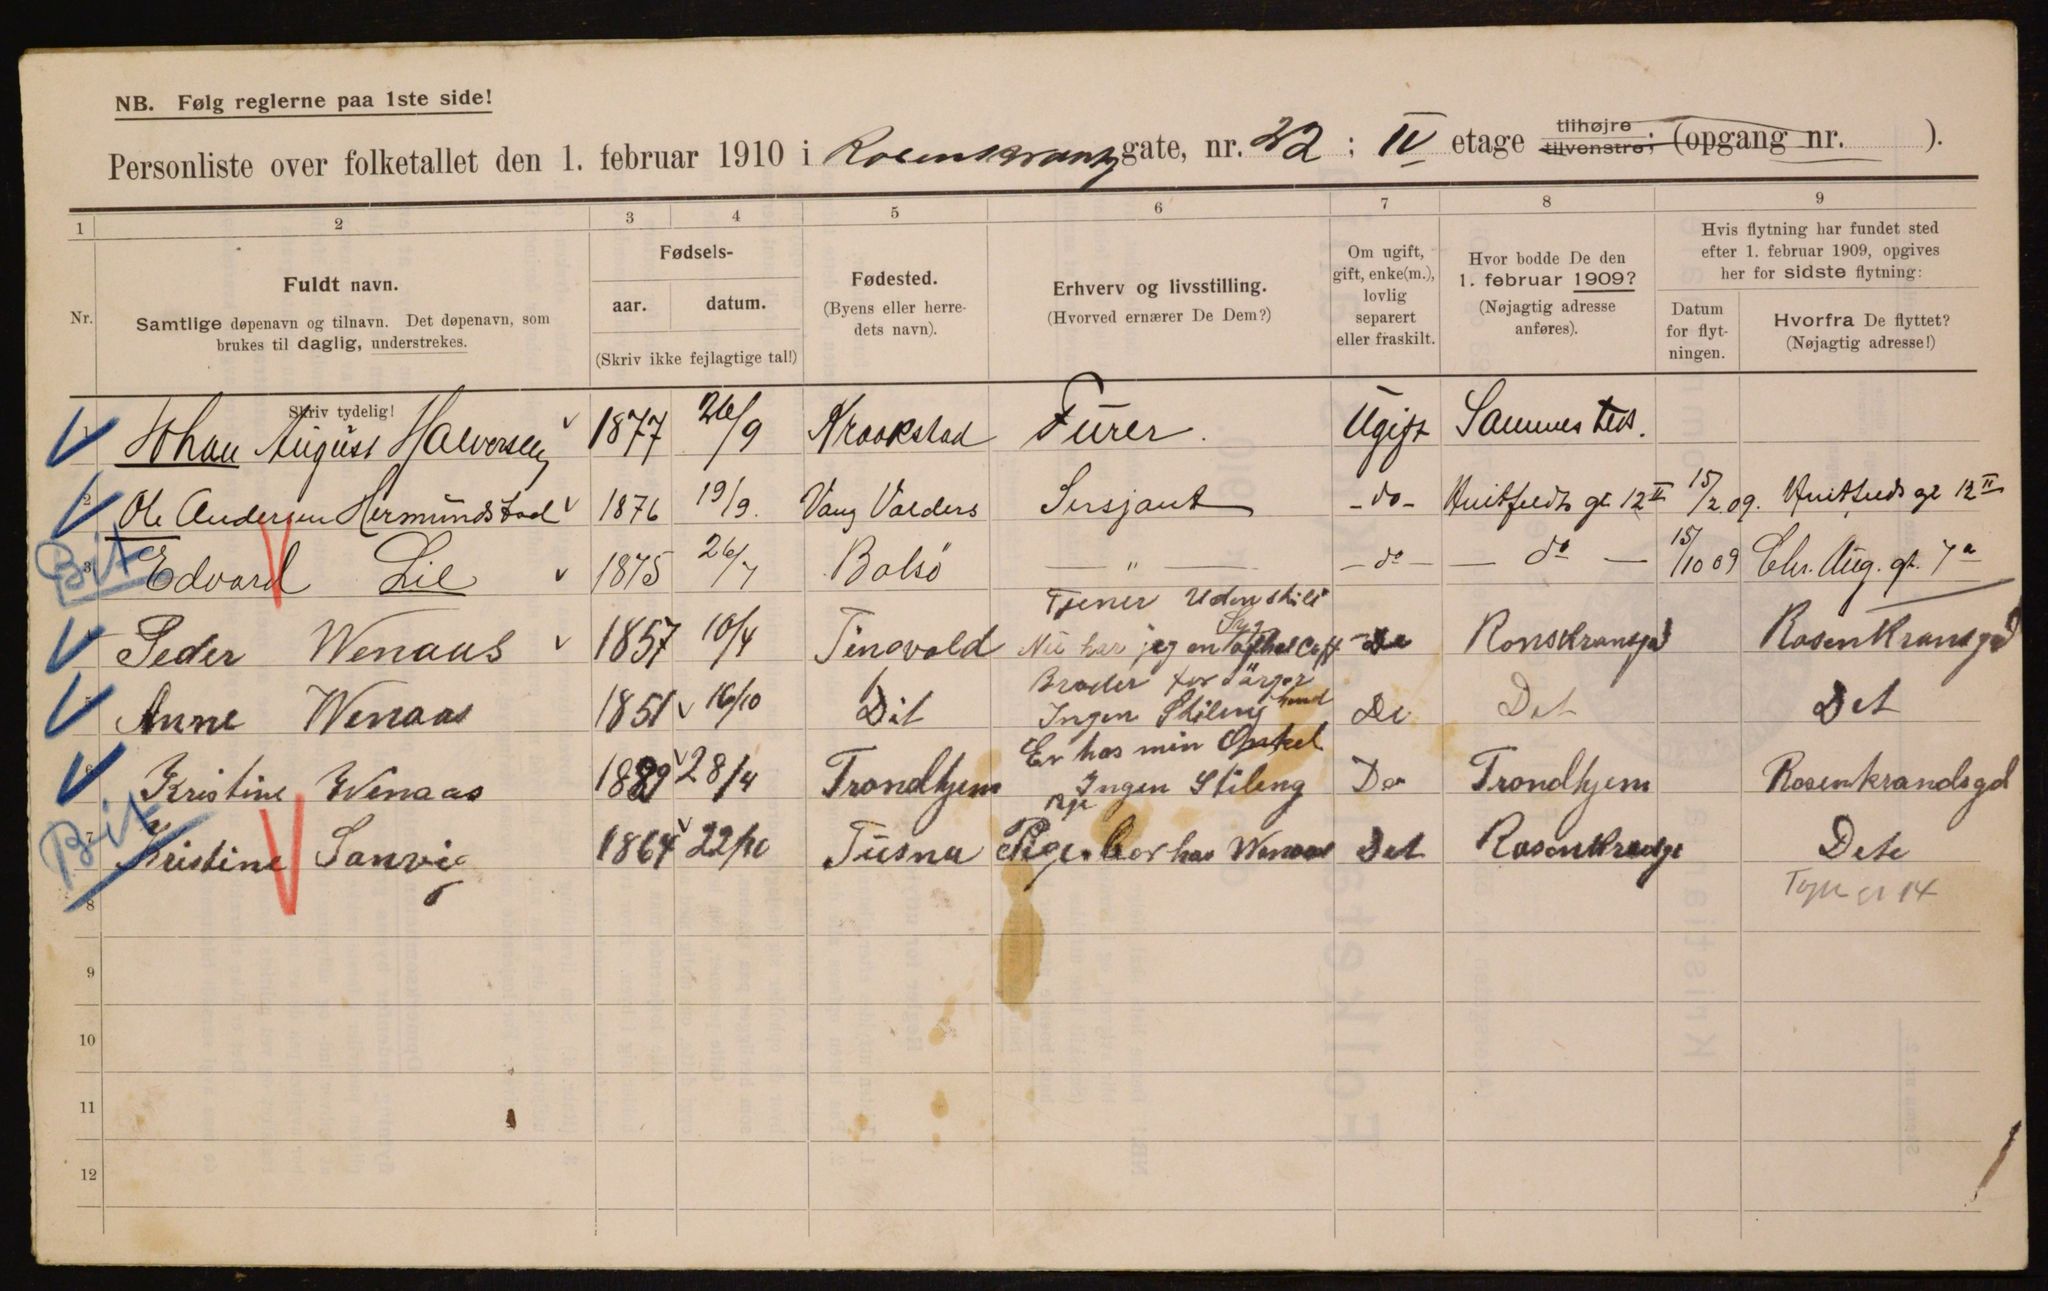 NB. Følg reglerne paa 1ste side!
Personliste over folketallet den 1. februar 1910 i Rosenkrantz gate, nr. 22 ; IV etage tilhøjre tilvenstre; (opgang nr. ).
1 2 3 4 5 6 7 8 9
Nr.
Fuldt navn.
Samtlige døpenavn og tilnavn. Det døpenavn, som
brukes til daglig, understrekes.
Skriv tydelig!
Fødsels-
aar. datum.
(Skriv ikke fejlagtige tal!)
Fødested.
(Byens eller herre-
dets navn).
Erhverv og livsstilling.
(Hvorved ernærer De Dem?)
Om ugift,
gift, enke(m.),
lovlig
separert
eller fraskilt.
Hvor bodde De den
1. februar 1909?
(Nøjagtig adresse
anføres).
Hvis flytning har fundet sted
efter 1. februar 1909, opgives
her for sidste flytning:
Datum
for flyt-
ningen.
Hvorfra De flyttet?
(Nøjagtig adresse!)
1 Johan August Halvorsen 1877 26/9 Kraakstad Furer. Ugift Sammesteds.
2 Ole Andersen Hermundstad 1876 19/9. Vang Valders Sersjant -do- Huitfeldts gt 12 II 15/2.09. Huitfeds gt 12 II
Bit
3 Edvard Lie 1875 26/7 Bolsö — " — -do- — do — 15/10 09 Chr. Aug. gt. 7a
Tjener
4 Peder Wenaas 1857 10/4 Tingvold Nu har jeg en De Ronskransgd RosenKransgd
Broder for
5 Anne Wenaas 1851 16/10 Dit Ingen Stileng De Det Det
Er hos min Onkel
6 Kristine Wenaas 1889 28/4 Trondhjem Ingen Stileng De Trondhjem Rosenkrandsgd
Bit
7 Kristine Sanvig 1864 22/10 Tusna hos Wenaas Det Dete
8 14
9
10
11
12